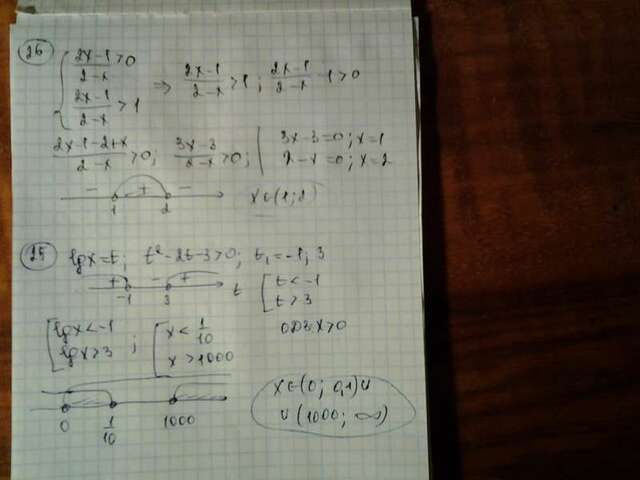 26 { (2x-1)/(2-x) > 0
(2x-1)/(2-x) > 1 ⇒ (2x-1)/(2-x) > 1 ; (2x-1)/(2-x) - 1 > 0
(2x-1-2+x)/(2-x) > 0; (3x-3)/(2-x) > 0; | 3x-3=0; x=1
2-x=0; x=2
- + -
1 2 x∈(1;2)
25 lgx=t; t²-2t-3>0; t₁=-1; 3
+ - +
-1 3 t [ t<-1
t>3
[ lgx<-1
lgx>3 ; [ x < 1/10
x > 1000 ОДЗ: x>0
0 1/10 1000
x∈(0; 0,1)∪
∪(1000; ∞)